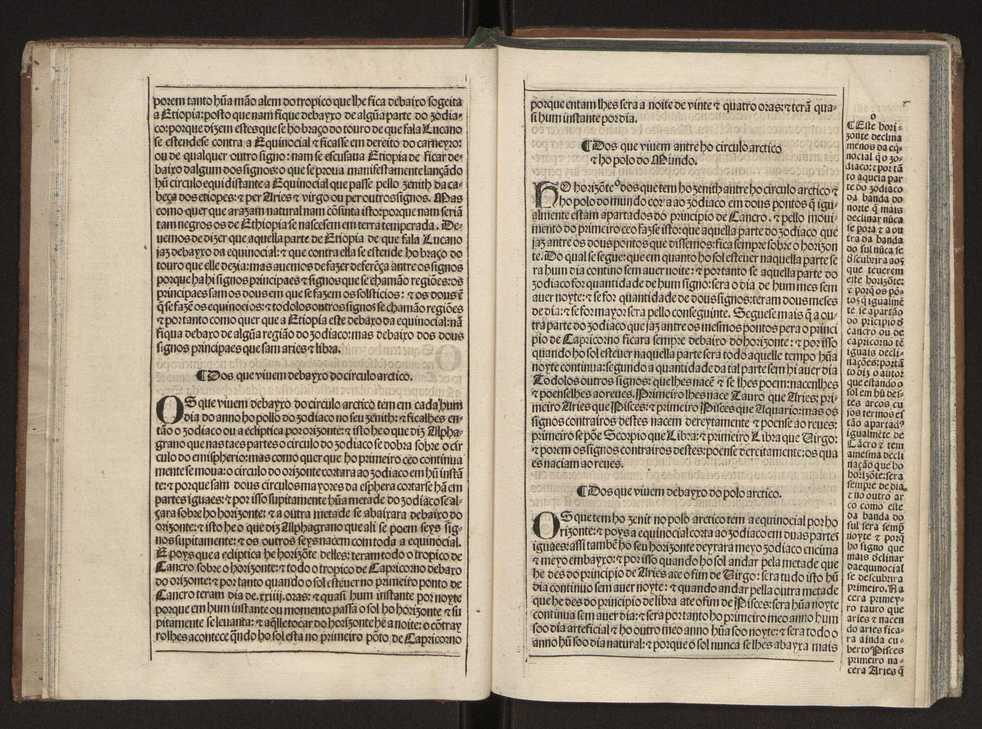 porem tanto hũa mão alem do tropico que lhe fica debaixo sogeita
a Etiopia: posto que nam fique debayxo de algũa parte do zodia-
co: porque dizem estes que se ho braço do touro de que fala Lucano
se estendese contra a Equinocial & ficasse em dereito do carneyro:
ou de qualquer outro signo: nam se escusaua Etiopia de ficar de-
baixo dalgum dos signos: o que se proua manifestamente lançãdo
hũ circulo equidistante a Equinocial que passe pello zenith da ca-
beça dos etiopes: & per Aries & virgo ou per outros signos. Mas
como quer que a razam natural nam cõsinta isto: porque nam seriã
tam negros os de Ethiopia se nascessem em terra temperada. De-
uemos de dizer que aquella parte de Etiopia de que fala Lucano
jaz debayxo da equinocial: & que contra ella se estende ho braço do
touro que elle dezia: mas auemos de fazer deferẽça antre os signos
porque ha hi signos principaes & signos que se chamão regiões: os
principaes sam os dous em que se fazem os solsticios: & os dous ẽ
q̃ se fazẽ os equinocios: & todolos outros signos se chamão regiões
& por tanto como quer que a Etiopia este debaxo da equinocial: nã
fiqua debaxo de algũa região do zodiaco: mas debaixo dos dous
signos principaes que sam aries & libra.
¶ Dos que viuem debayxo do circulo arctico.
OS que viuem debayxo do circulo arctico tem em cada hum
dia do anno ho pollo do zodiaco no seu zenith: & ficalhes en-
tão o zodiaco ou a ecliptica por orizonte: & isto he o que diz Alpha-
grano que nas taes partes o circulo do zodiaco se dobra sobre o cir
culo do emispherio: mas como quer que ho primeiro ceo continua
mente se moua: o circulo do orizonte cortara ao zodiaco em hũ instã
te: & porque sam dous circulos mayores da esphera cortarse hã em
partes iguaes: & por isso supitamente hũa metade do zodiaco se al-
çara sobre ho horizonte: & a outra metade se abaixara debaixo do
orizonte: & isto he o que diz Alphagrano que ali se poem seys sig-
nos supitamente: & os outros seys nacem com toda a equinocial.
E poys que a ecliptica he horizõte delles: teram todo o tropico de
Cancro sobre o horizonte: & todo o tropico de Capricorno debaxo
do orizonte: & por tanto quando o sol esteuer no primeiro ponto de
Cancro teram dia de .xxiiij. oras: & quasi hum instante por noyte
porque em hum instante ou momento passa o sol ho horizonte & su
pitamente se leuanta: & aq̃lle tocar do horizonte hé a noite: o cõtray
ro lhes acontece q̃ndo ho sol esta no primeiro põto de Capricorno
porque entam lhes sera a noite de vinte & quatro oras: & terã qua-
si hum instante por dia.
¶ Dos que viuem antre ho circulo arctico
& ho polo do Mundo.
HO horizõte dos que tem ho zenith antre ho circulo arctico &
ho polo do mundo corta ao zodiaco em dous pontos q̃ igu-
almente estam apartados do principio de Cancro. & pello moui-
mento do primeiro ceo fazse isto: que aquella parte do zodiaco que
jaz antre os dous pontos que dissemos: fica sempre sobre o horizon
te. Do qual se segue: que em quanto ho sol esteuer naquella parte se
ra hum dia contino sem auer noite: & portanto se aquella parte do
zodiaco for quantidade de hum signo: sera o dia de hum mes sem
auer noyte: & se for quantidade de dous signos: teram dous meses
de dia: & se for mayor sera pello conseguinte. Seguese mais q̃ a ou-
tra parte do zodiaco que jaz antre os mesmos pontos pera o princi
pio de Capricorno ficara sempre debaixo do horizonte: & por isso
quando ho sol esteuer naquella parte sera todo aquelle tempo hũa
noyte continua: segundo a quantidade da tal parte sem hi auer dia
Todolos outros signos: que lhes nacẽ & se lhes poem: nacenlhes
& poenselhes ao reues. Primeiro lhes nace Tauro que Aries: pri-
meiro Aries que Pisces: & primeiro Pisces que Aquario: mas os
signos contrairos destes nacem dereytamente & poense ao reues:
primeiro se põe Scorpio que Libra: & primeiro Libra que Uirgo:
& porem os signos contrairos destes: poense dereitamente: os qua
es naciam ao reues.
¶ Dos que viuem debayxo do polo arctico.
OS que tem ho zenit no polo arctico tem a equinocial por ho
rizonte: & poys a equinocial corta ao zodiaco em duas partes
iguaes: assi tambẽ ho seu horizonte deyxara meyo zodiaco encima
& meyo embayxo: & por isso quando ho sol andar pela metade que
he des do principio de Aries ate o fim de Uirgo: sera tudo isto hũ
dia continuo sem auer noyte: & quando andar pella outra metade
que he des do principio de libra ate o fim de Pisces: sera hũa noyte
continua sem auer dia: & sera por tanto ho primeiro meo anno hum
soo dia arteficial & ho outro meo anno hũa soo noyte: & sera todo o
anno hũ soo dia natural: & porque o sol nunca se lhes abayxa mais
o
¶ Este hori-
zonte declina
menos da eq̃-
nocial q̃ o zo-
diaco: & por tã
to aquela par
te do zodiaco
da banda do
norte q̃ mais
declinar nũca
se pora & a ou
tra da banda
do sul nũca se
descubrira aos
que teuerem
este horizõte:
& porq̃ os põ-
tos q̃ igualmẽ
te se apartão
do pricipio d
cancro ou de
capricorno tẽ
iguais decli-
nações: portã
to diz o autor
que estando o
sol em hũ des-
tes arcos cu
jos termos es
tão apartados
igualmẽte de
Cãcro & tem
a mesma decli
nação que ho
horizõte: sera
sempre de dia.
& no outro ar
co como este
da banda do
sul sera semp̃
noyte & porq̃
ho signo que
mais declinar
da equinocial
se descubrira
primeiro. Na
cera primey-
ro tauro que
aries & nacen
do aries fica-
ra ainda en-
berto Pisces
primeiro na-
cera Aries q̃